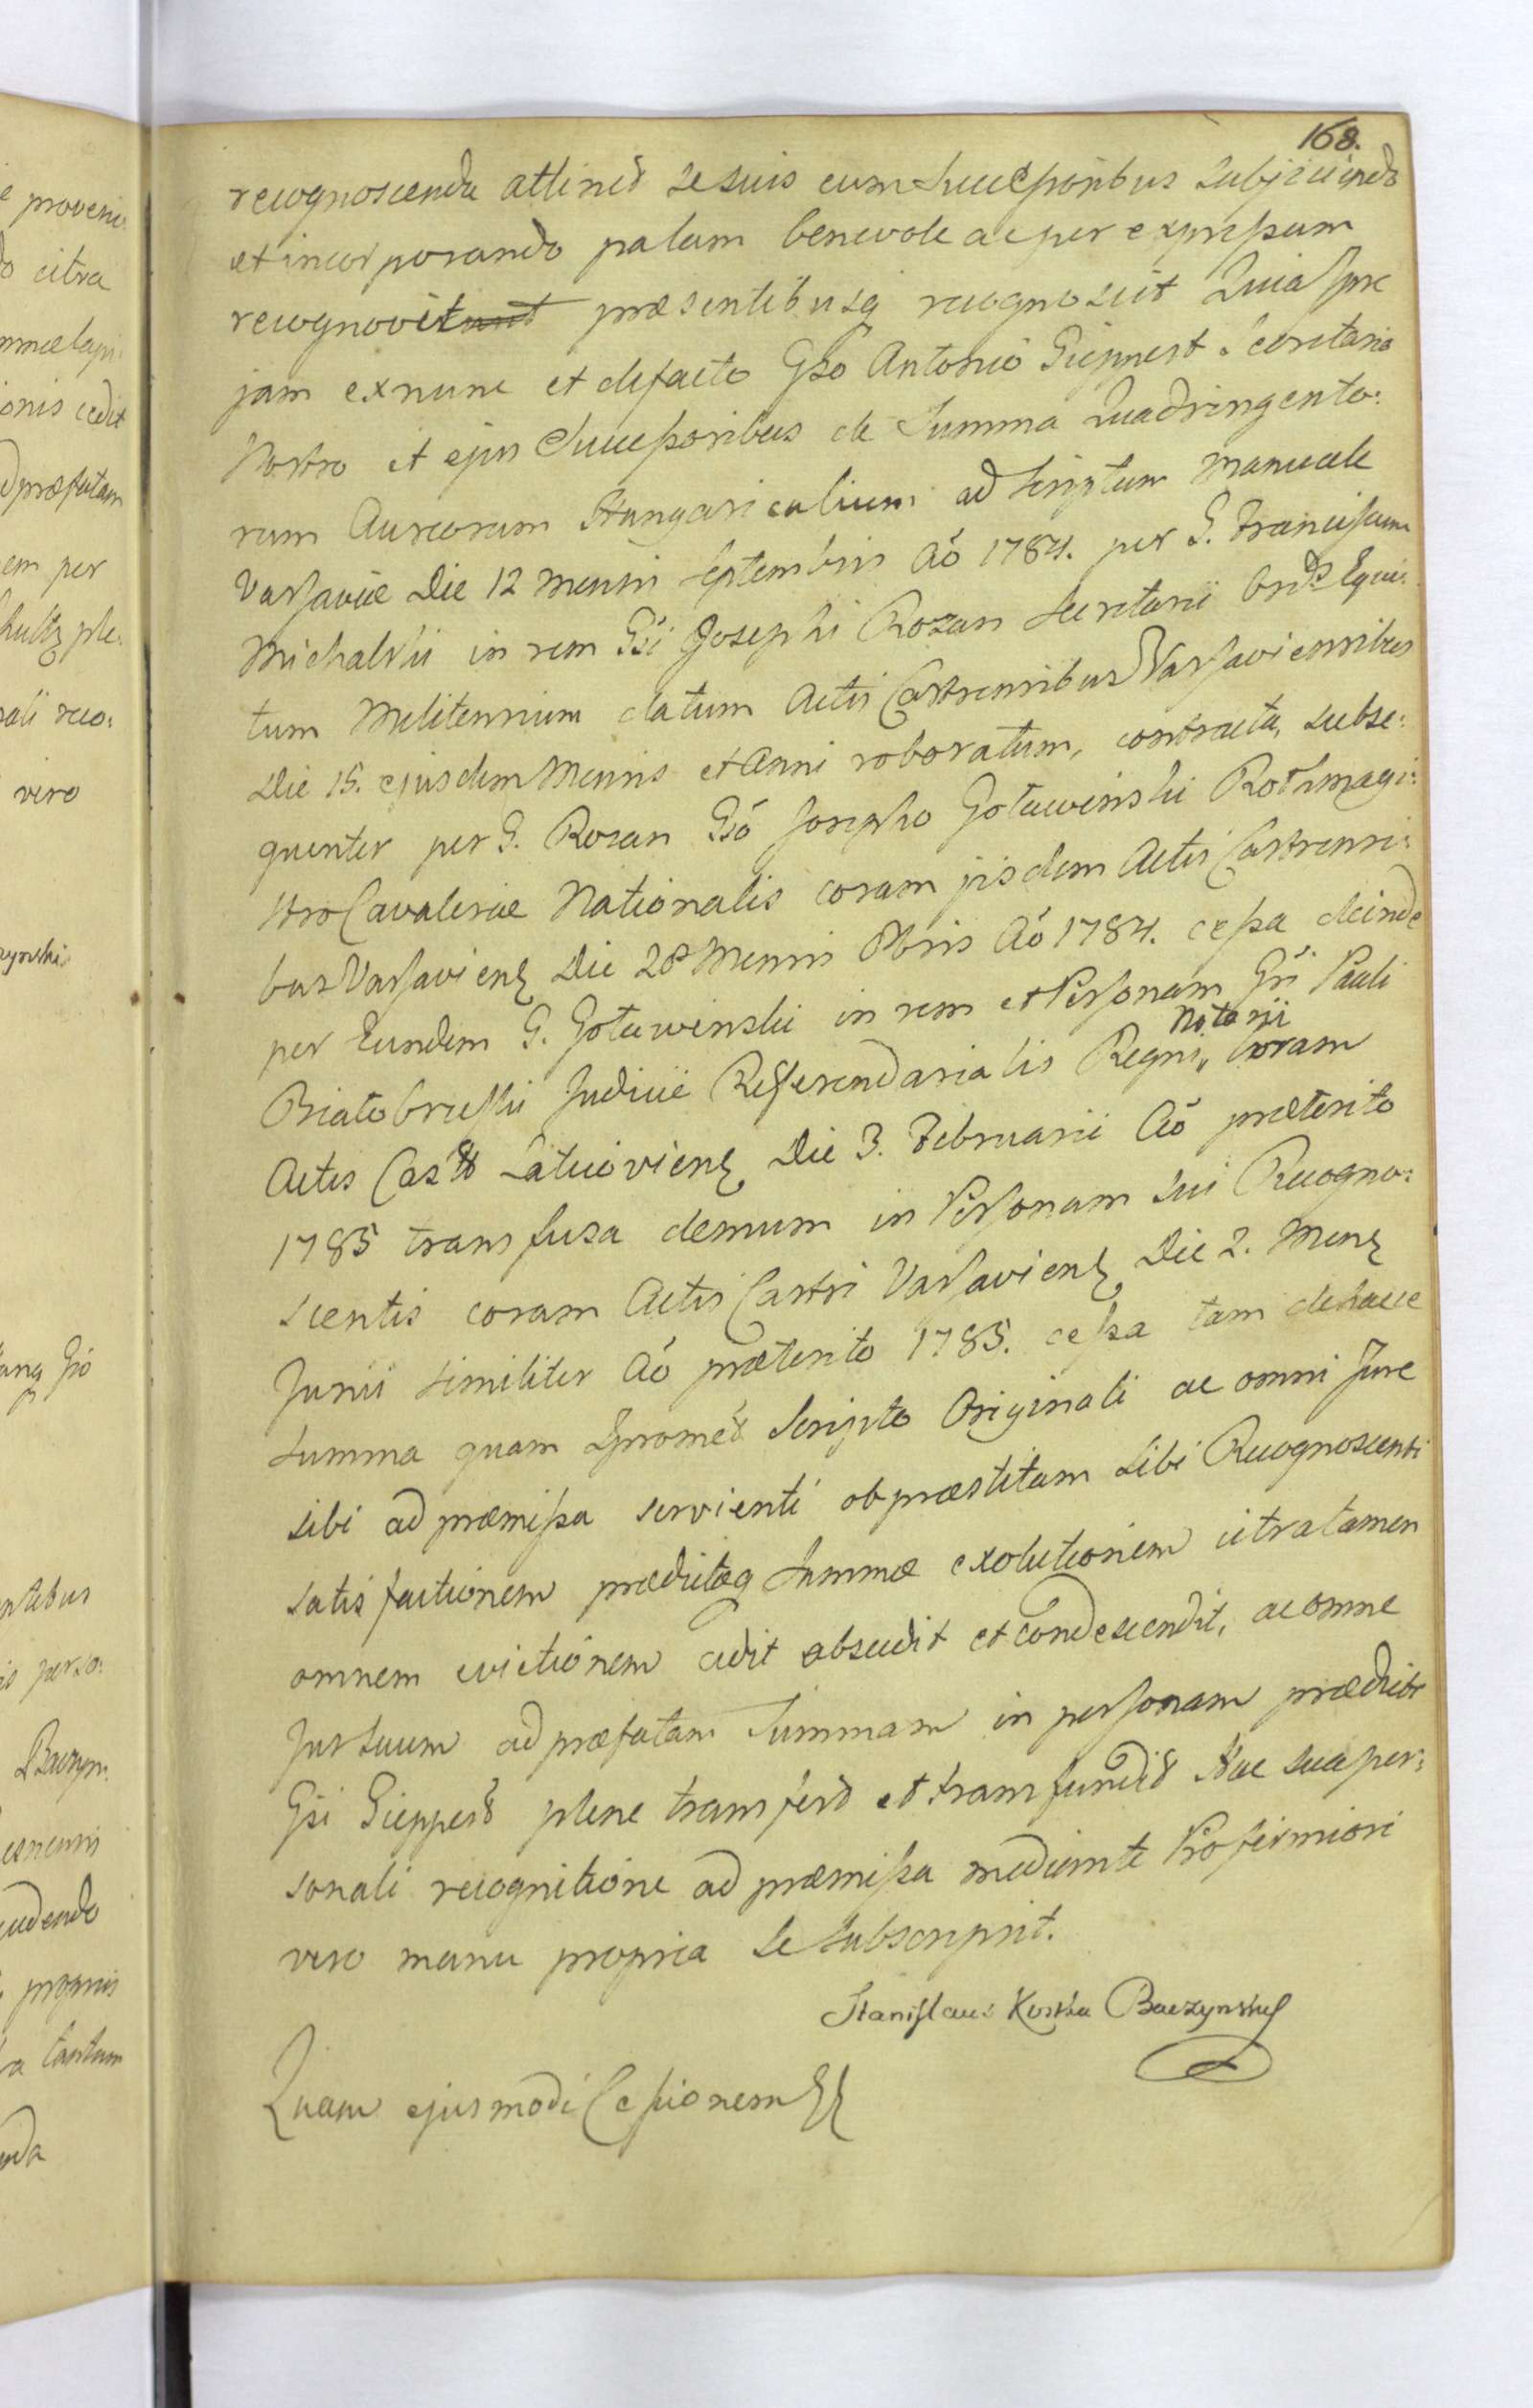 168.
recognoscenda attinet se suis cum Successoribus subjiciendo
et incorporando palam benevole ac per expressum
recognovit præsentibusq recognoscit Quia Ipse
jam ex nunc et de facto Gso Antonio Gieppert Secretario
Nostro et ejus Successoribus de Summa Quadringento:
rum Aureorum Hungaricalium ad scriptum manuale
Varsaviæ Die 12 Mensis Septembris Aō 1784. per G. Franciscum
Michalski in rem Gsi Josephi Rozan Secretarii Ords Eque:
tum Melitensium datum Actis Castrensibus Varsaviensibus
Die 15. ejusdem Mensis et Anni roboratum, contracta, subse:
quenter per G. Rozan Gsō Josepho Gołuwinski Rothmagi:
stro Cavaleriæ Nationalis coram jisdem Actis Castrensi:
bus Varsavien Die 28 Mensis 8bris Aō 1784. cessa deinde
per Eundem G. Gołuwinski in rem et Personam Gsi Pauli
Białobrzeski Judicii Referendarialis Regni Notarii coram
Actis Cast Latuovien Die 3. Februarii Aō præterito
1785 transfusa demum in Personam sui Recogno:
scentis coram Actis Castri Varsavien Die 2. Mens
Junii similiter Aō præterito 1785. cessa tam de hacce
summa quam Ipromet Scripto Originali ac omni Jure
sibi ad præmissa servienti ob præstitam sibi Recognoscenti
satisfactionem prædictæq Summæ exolutionem citra tamen
omnem evictionem cedit abscedit et condescendit, ac omne
Jus suum ad præfatam Summam in personam prædicti
Gsi Gieppert plene transfert et transfundit Hac sua per:
sonali recognitione ad præmissa mediante Pro firmiori
vero manu propria se subscripsit.
Stanislaus Kostka Baczynski
Quam ejusmodi Cessionem